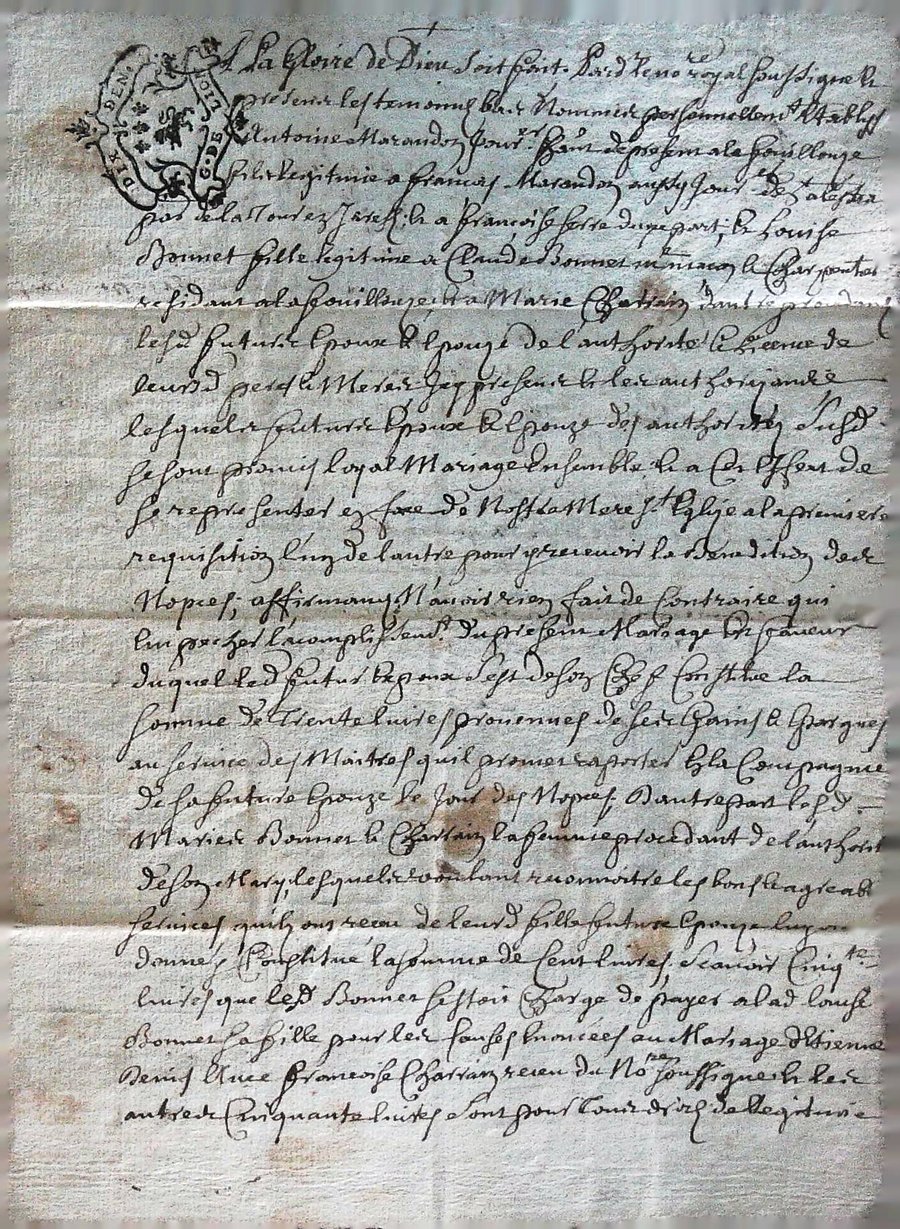 DIX DEN. G. DE LION
A La Gloire de Dieu soit fait. Pard^t le no^re royal soussigne &
presens les temoins bas Nommes personnellem^t Establys
Antoine Marandon Jour^er habt de present a la fouillouze
fils legitime a francois Marandon aussy Jour^er de
par de la Tour en Jarest, & a francoise serre dune part; & Louise
Bonnet fille legitime a Claude Bonnet m^re masson & Charpentier
residant a la fouillouze & a Marie Charrain dautre procedant
lesd futurs Epoux & Epouze de l'authorité & licence de
leursd peres & Meres Icy presens & les authorizands
lesquels futurs Epoux & Epouze des authorités susd
se sont promis loyal Mariage Ensemble & a Cet Effect de
se representer en face de Nostre Mere s^te Eglize a la premiere
requisition l'un de lautre pour y recevoir la Benediction des
Nopces; affirmans N'avoir rien fait de Contraire qui
Empecher l'acomplissem^t du present Mariage En faveur
duquel led futur Epoux s'est de son Chef Constitué la
somme de Trente livres provenues de ses gains & Epargnes
au service des Maitres quil promet aporter En la Compagnie
de sa future Epouze le Jour des Nopces; Dautre part lesd
Maries Bonnet & Charrain sa femme procedant de l'authorité
de son Mary, lesquels voulant reconnoitre les bons & agreab
services quils ont receu de leurd fille future Epouze luy on
donné & Constitué la somme de Cent livres, scavoir Cinq^te
livres que led Bonnet sestoit Chargé de payer a lad louise
Bonnet sa fille pour les Causes Enoncées au Mariage d'Etienne
Denis avec francoise Charrain receu du No^re soussigne & les
autres Cinquante livres sont pour tous droits de legitime